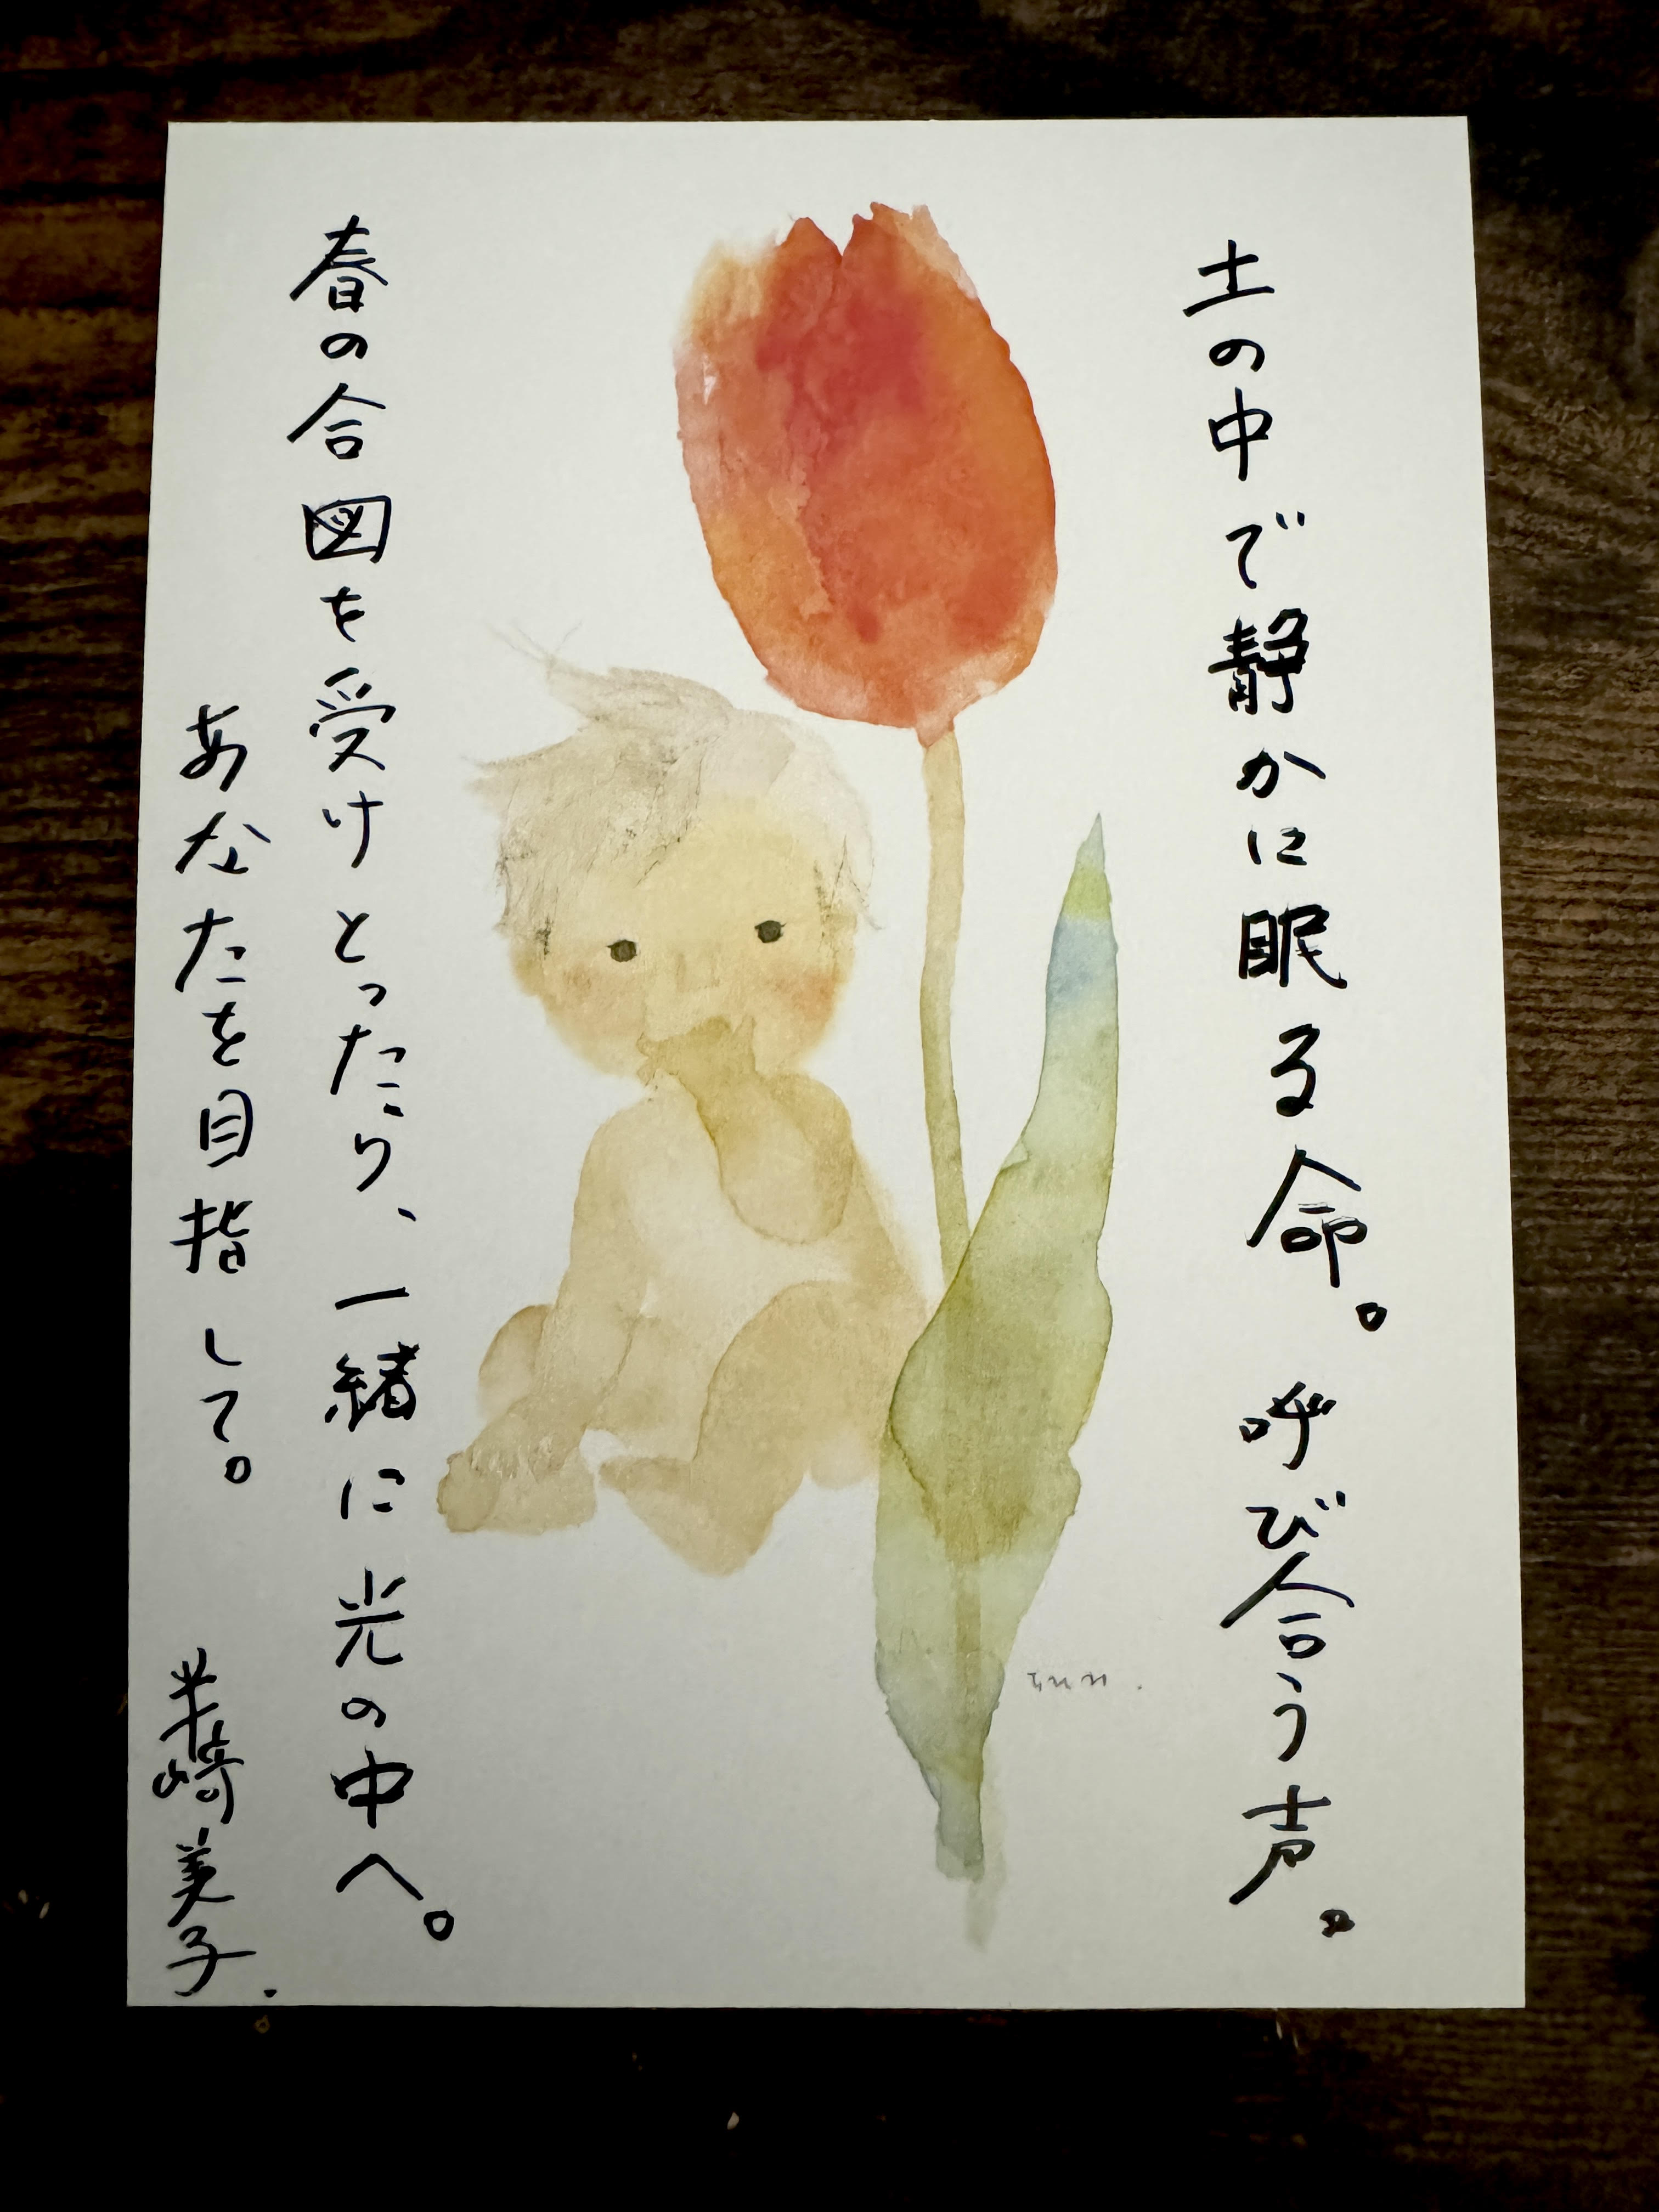 土の中で静かに眠る命。呼び合う声。
春の合図を受けとったり、一緒に光の中へ。
あなたを目指して。
米崎美子.